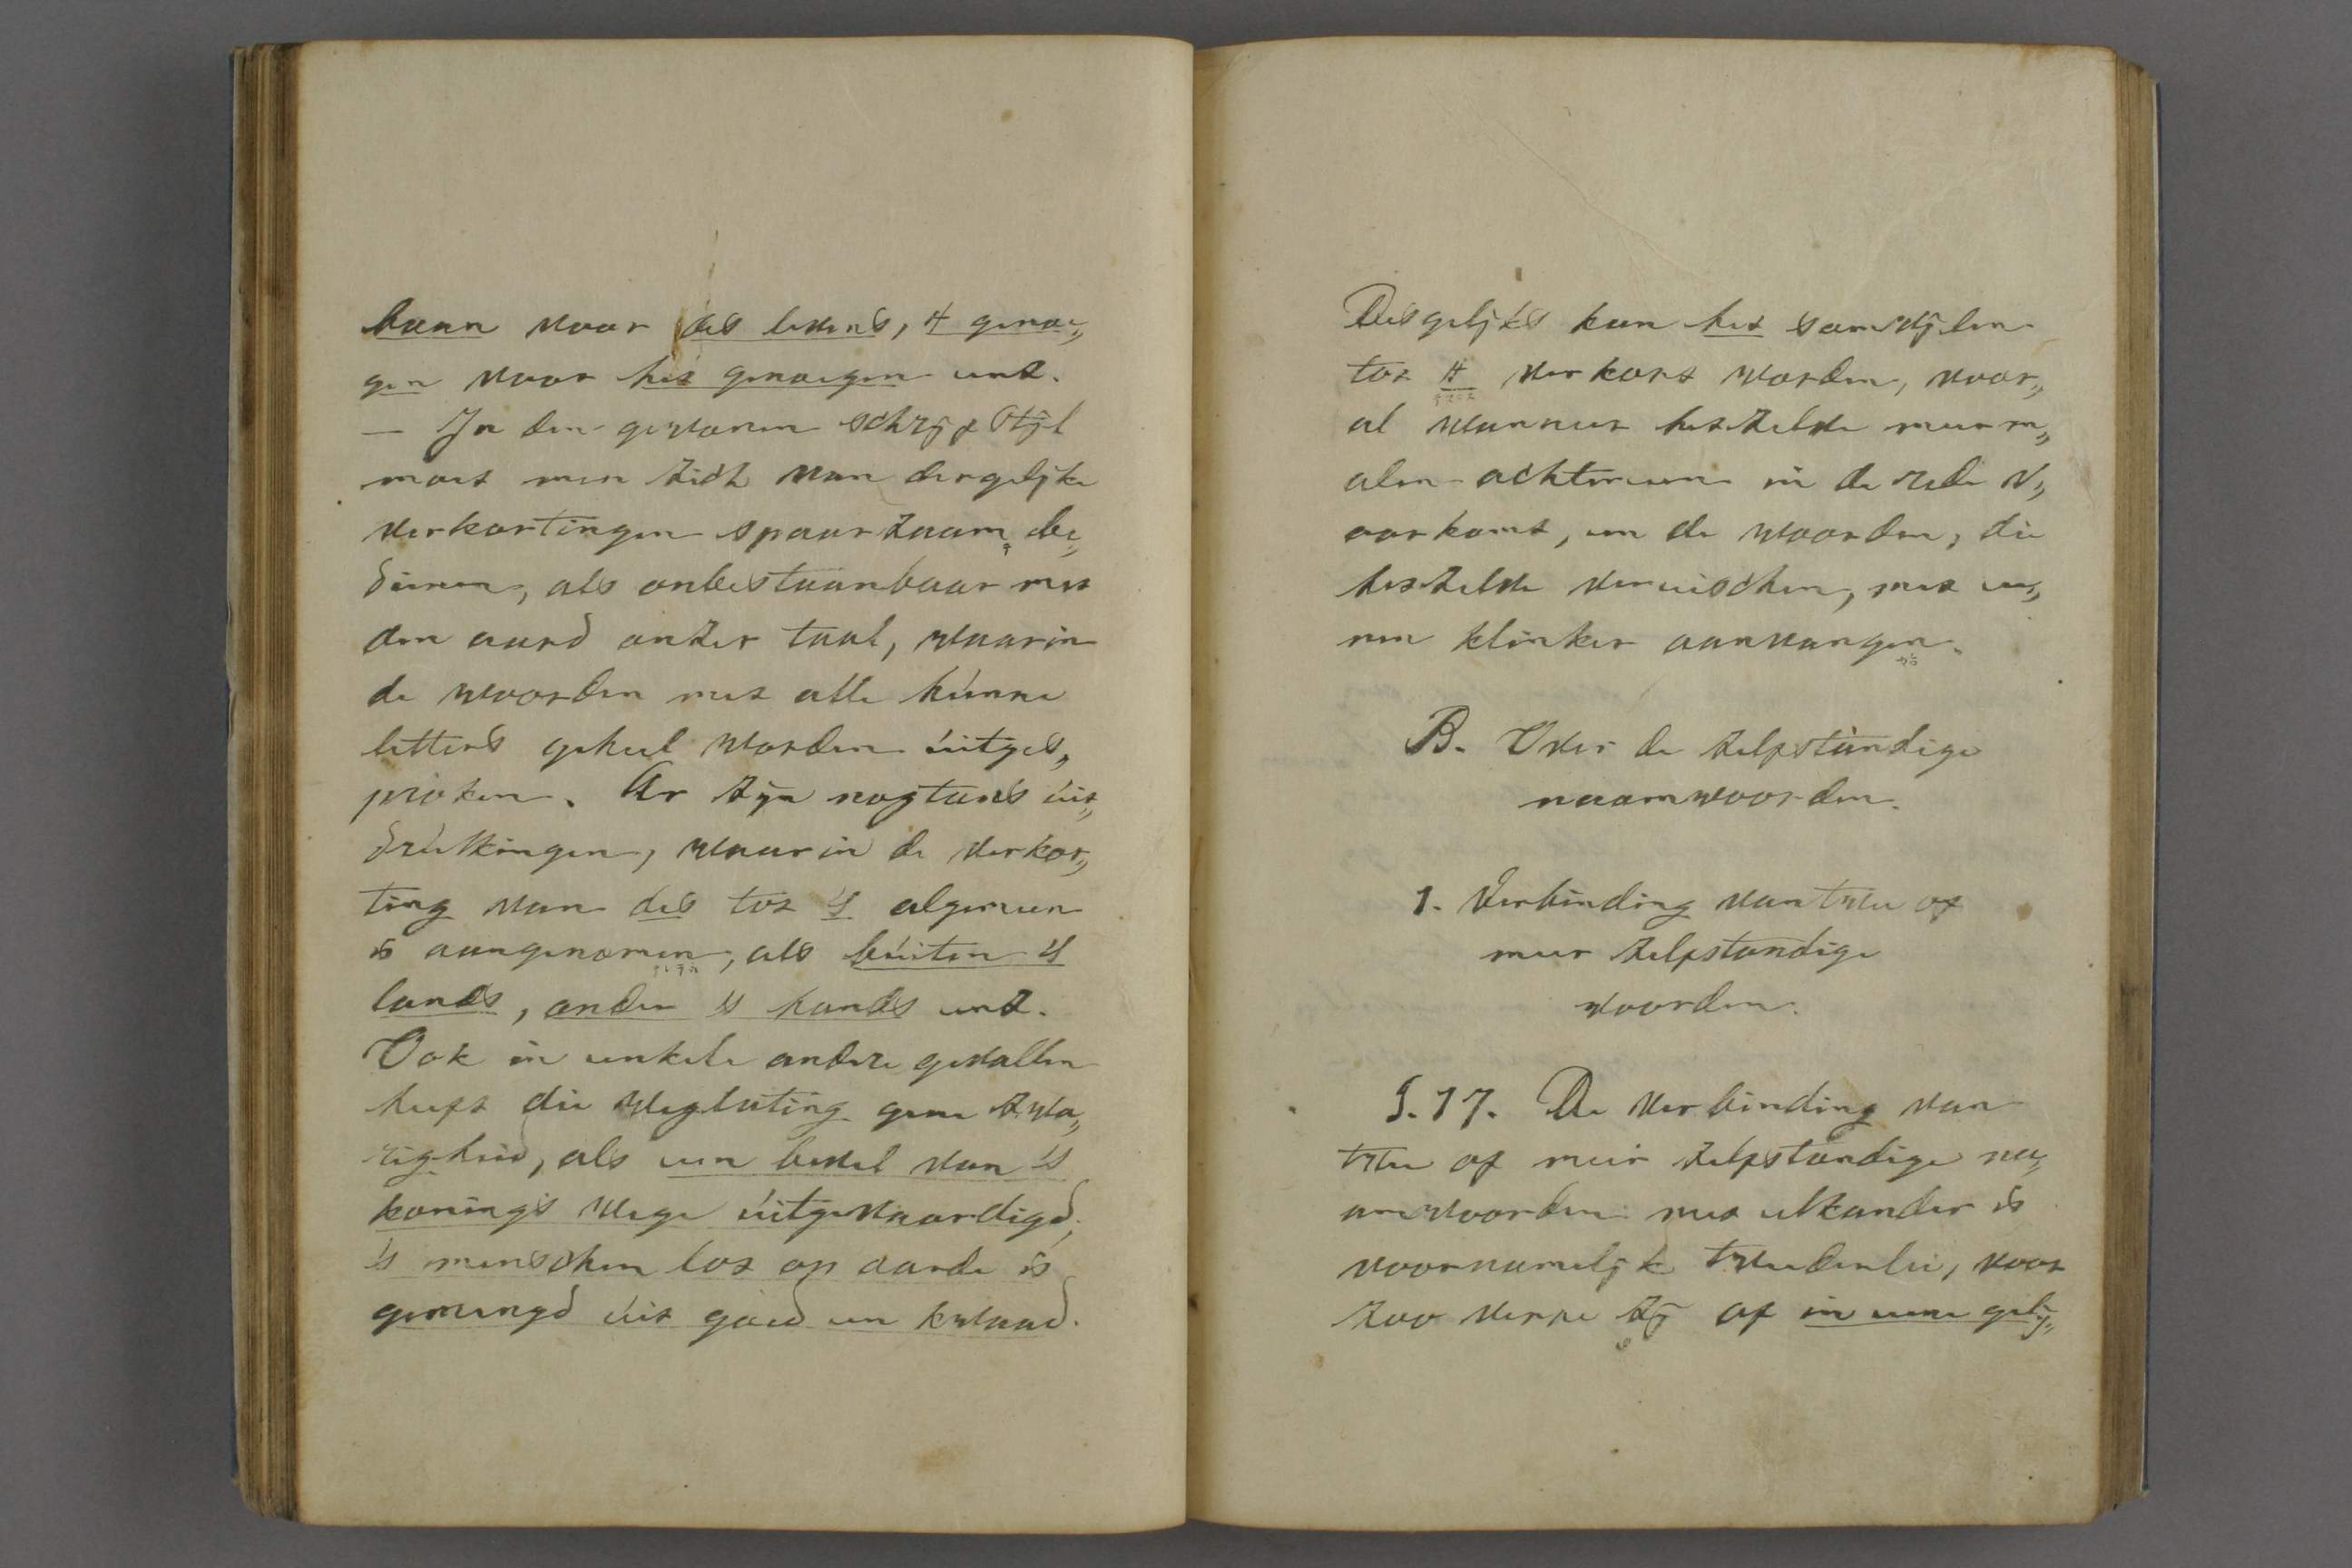 baan voor des levens, 't genoe„
gen voor het genoegen enz.
— In den gewonen schrijf stijl
moet men zich van dergelijke
verkortingen spaarzaam be„
dienen, als onbestaanbaar met
den aard onzer taal, waarin
de woorden met alle hunne
letters geheel worden uitges„
proken. Er zijn nogtans uit„
drukkingen, waarin de verkor„
ting van des tot 's algemeen
is aangenomen, als buiten 's
lands, onder 's hands enz.
Ook in enkele andere gevallen
heeft die weglating geene zwa„
righeid, als een bevel van 's
konings wege uitgevaardigd;
's menschen lot op aarde is
gemengd uit goed en kwaad.
Desgelijks kan het somwijlen
tot 't verkort worden, voor„
al wanneer hetzelve meerm„
alen achtereen in de rede v„
oorkomt, en de woorden, die
hetzelve vereischen, met ee„
nen klinker aanvangen.
B. Over de zelfstandige
naamwoorden.
1. Verbinding van twee of
meer zelfstandige
woorden.
§. 17. De verbinding van
twee of meer zelfstandige na„
amwoorden met elkander is
voornamelijk tweederlei, voor
zoo verre zij of in eene gelij„